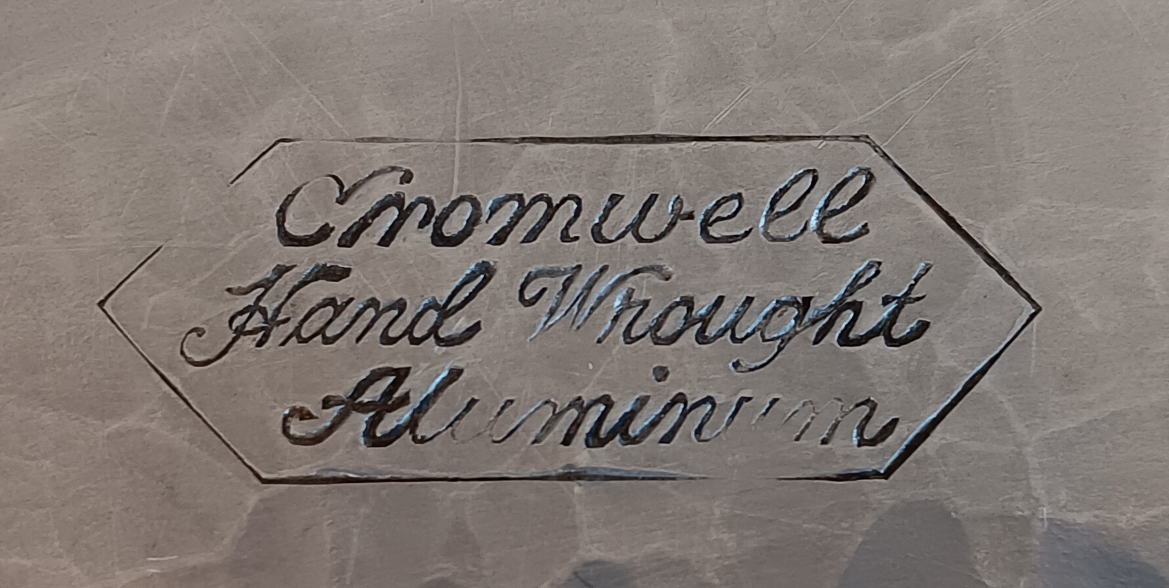 Cromwell
Hand Wrought
Aluminum